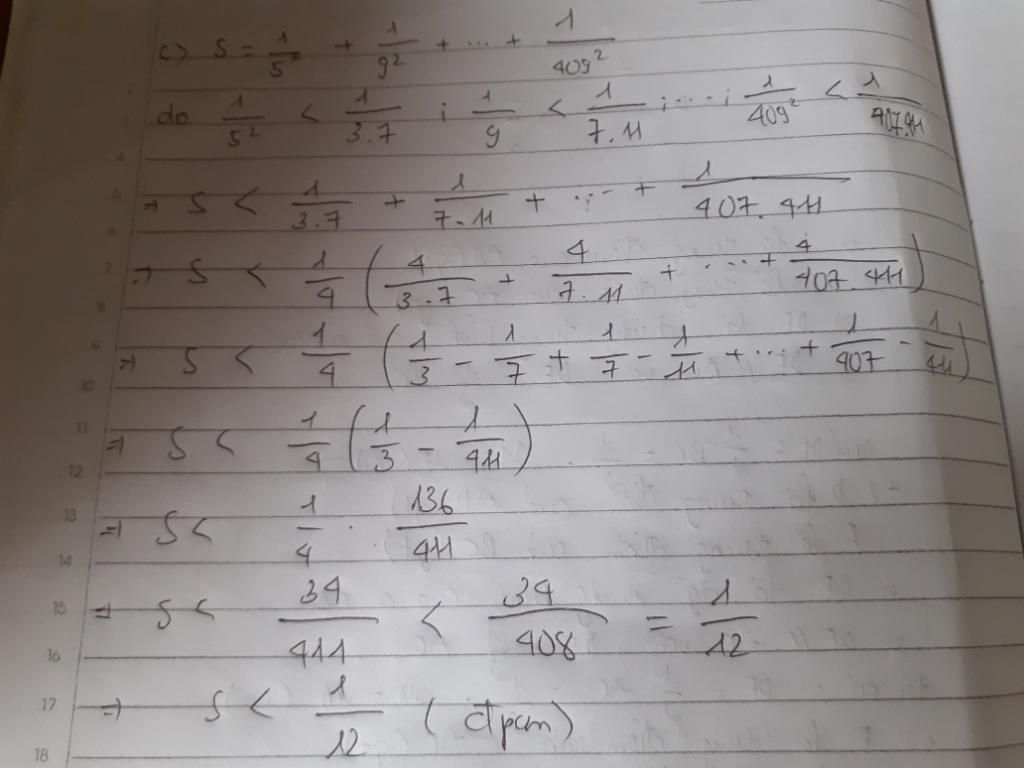 c) S = 1/5² + 1/9² + ... + 1/409²
do 1/5² < 1/3.7 ; 1/9 < 1/7.11 ; ... ; 1/409² < 1/407.411
⇒ S < 1/3.7 + 1/7.11 + ... + 1/407.411
⇒ S < 1/4 (4/3.7 + 4/7.11 + ... + 4/407.411)
⇒ S < 1/4 (1/3 - 1/7 + 1/7 - 1/11 + ... + 1/407 - 1/411)
⇒ S < 1/4 (1/3 - 1/411)
⇒ S < 1/4 . 136/411
⇒ S < 34/411 < 34/408 = 1/12
⇒ S < 1/12 (đpcm)